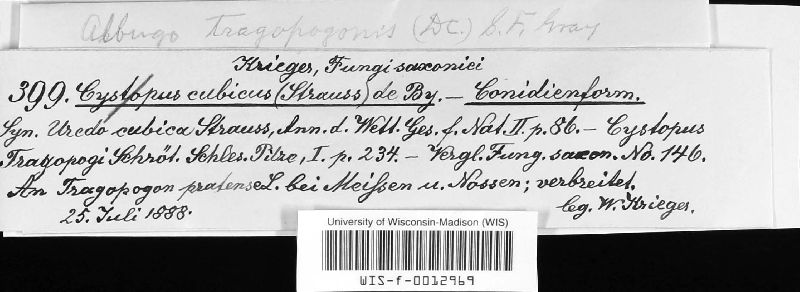 Albugo Tragopogonis (DC.) S. F. Gray
Krieger, Fungi saxonici
399. Cystopus cubicus (Strauss) de By. — Conidienform.
Syn. Uredo cubica Strauss, Ann. d. Wett. Ges. f. Nat. II. p. 86. — Cystopus
Tragopogi Schröt. Schles. Pilze, I. p. 234. — Vergl. Fung. saxon. No. 146.
An Tragopogon pratense L. bei Meißen u. Nossen; verbreitet.
25. Juli 1888.
leg. W. Krieger.
University of Wisconsin-Madison (WIS)
WIS-f-0012969